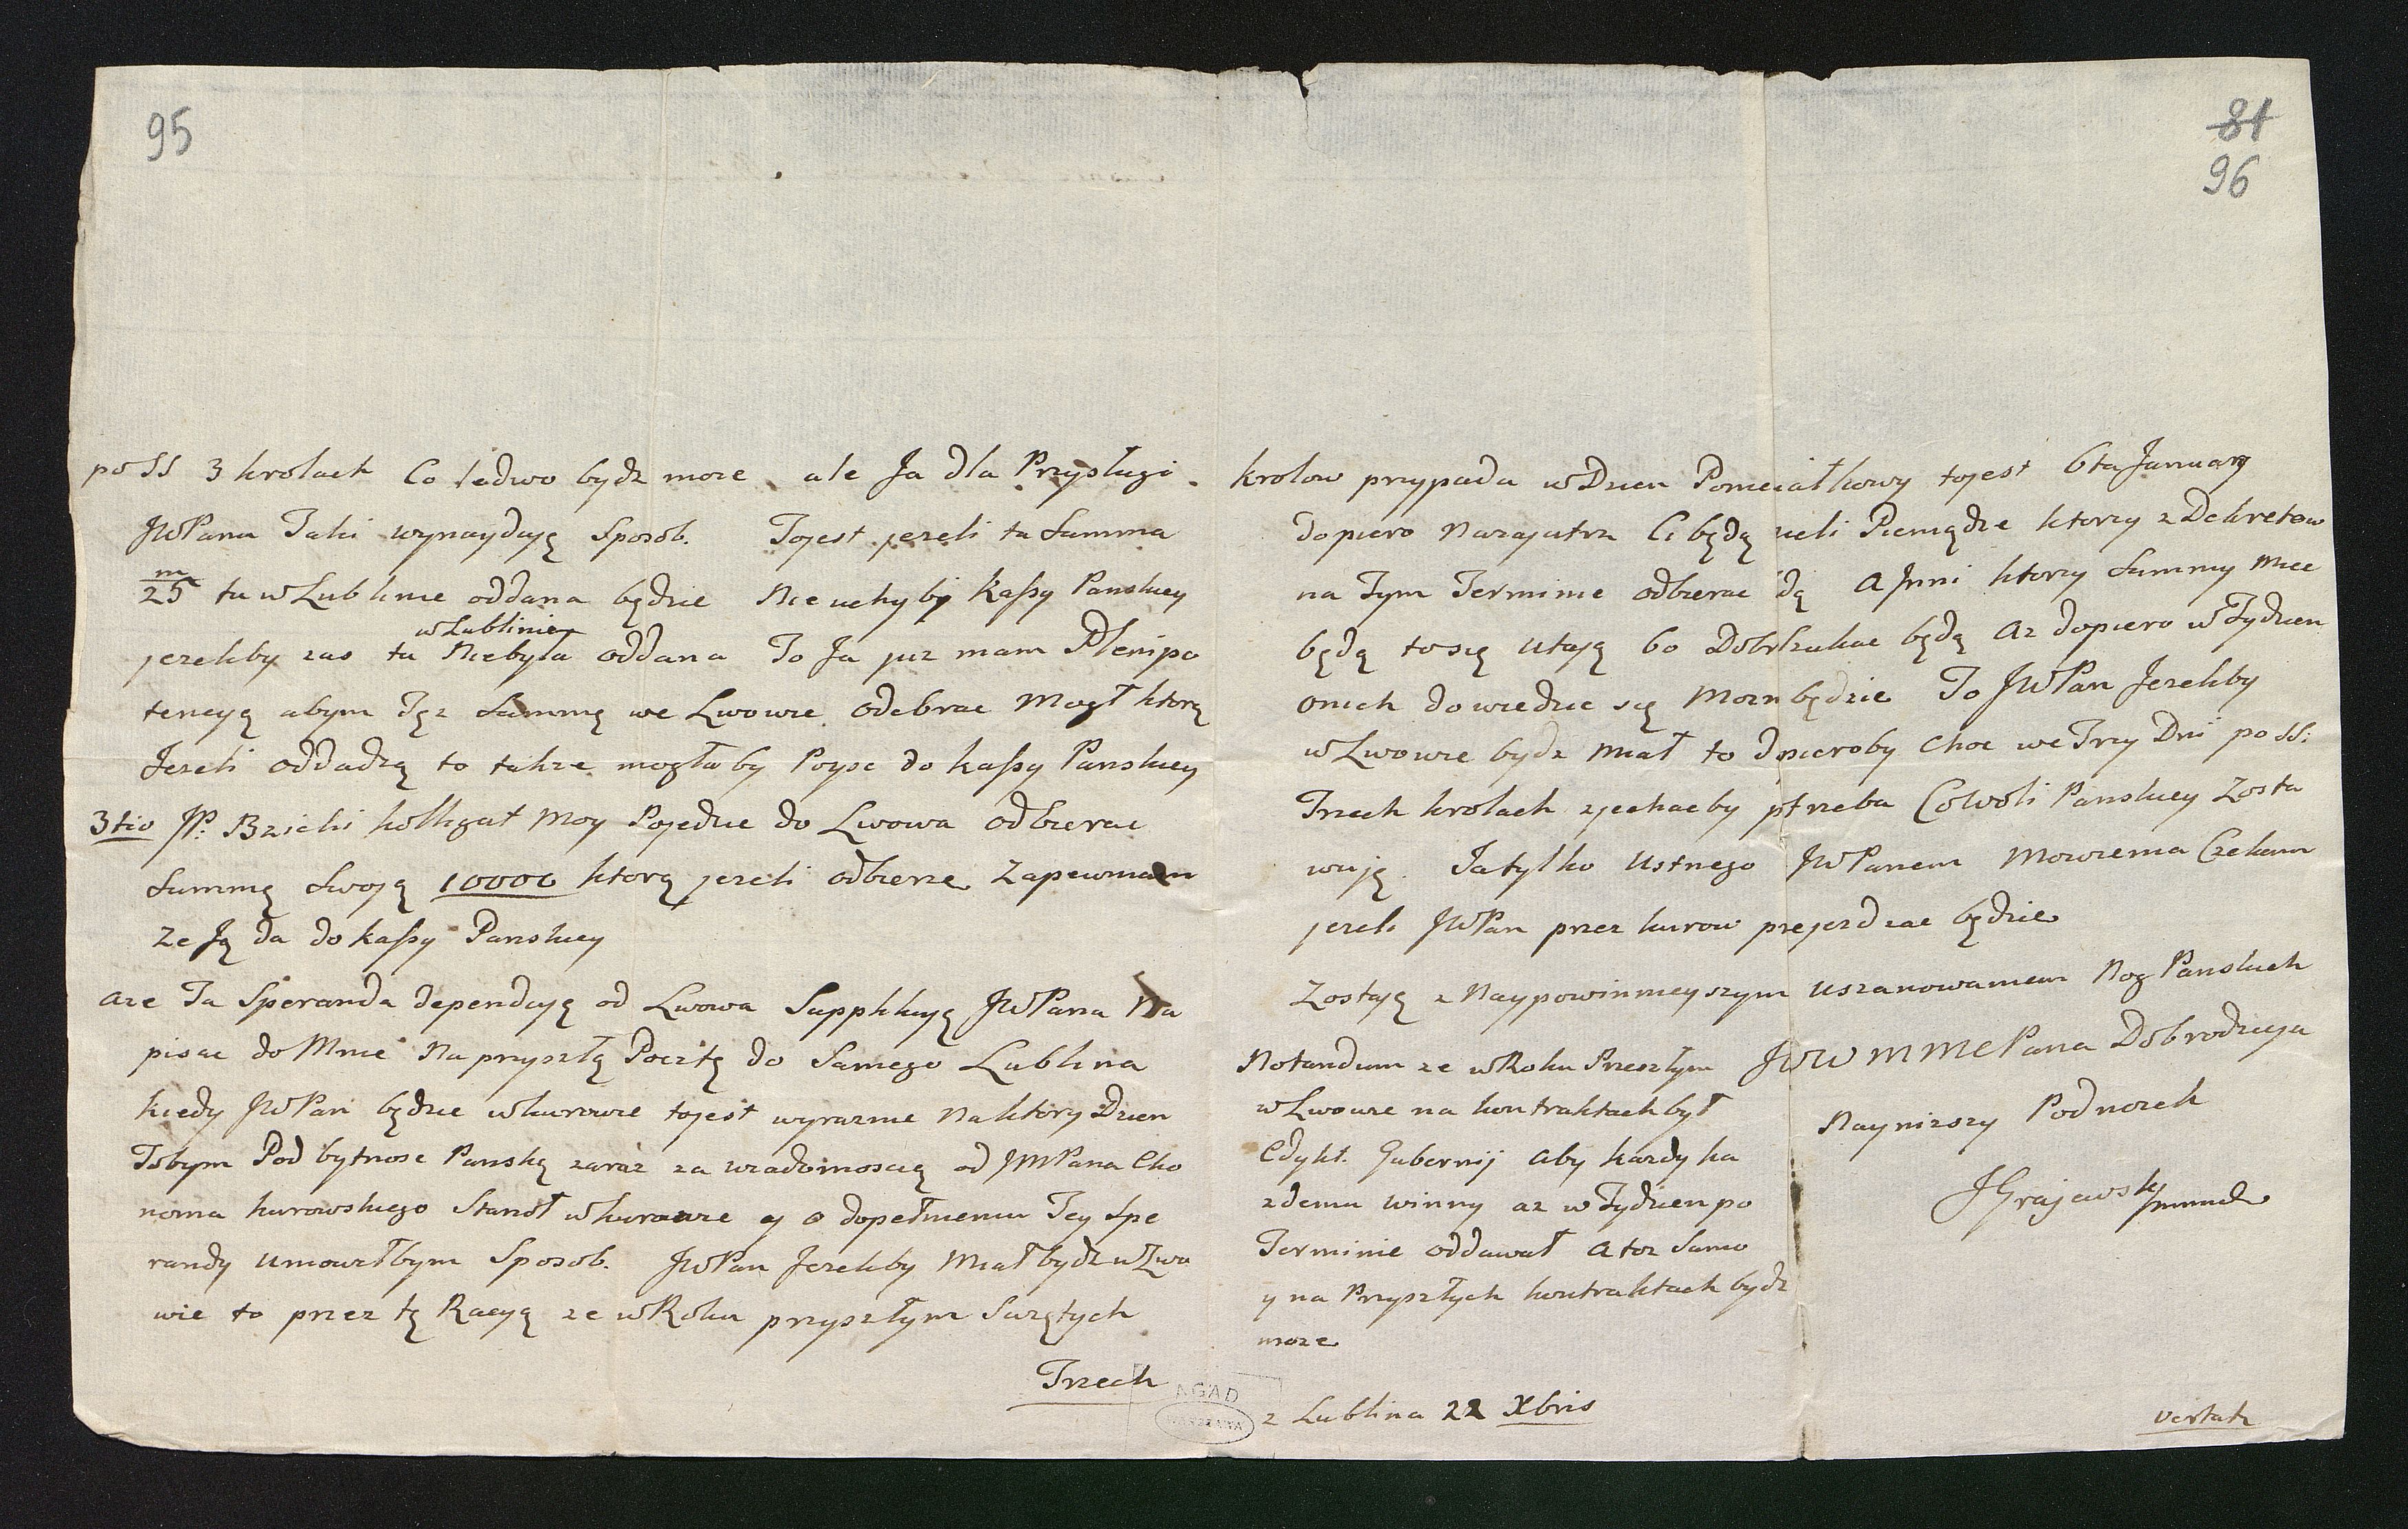 95
po SS 3 krolach Co ledwo bydz moze ale Ja dla Przysługi
JWPana Taki wynayduję Sposob. Tojest jezeli ta Summa
m
25 tu w Lublinie oddana będzie Nie uchybi kassy Panskiey
w Lublinie
jezeliby zas tu Niebyła oddana To Ja juz mam Plenipo
tencyą abym Tęz Summę we Lwowie odebrac Mogł ktorą
Jezeli oddadzą to takze mogłaby Poysc do kassy Panskiey
3tio JP. Bzicki kollegat Moy Pojedzie do Lwowa odbierac
Summę Swoją 10000 ktorą jezeli odbierze Zapewniam
Ze Ją da do kassy Panskiey
aze Ta Speranda dependuję od Lwowa Supplikuję JWPana Na
pisac do Mnie Na przyszłą Pocztę do Samego Lublina
kiedy JWPan będzie w kurowie tojest wyraznie Na ktory Dzien
Tobym Pod bytnosc Panską zaraz za wiadomoscią od JMPana Eko
noma kurowskiego Stanoł w kurowie y o dopełnieniu Tey Spe
randy umowiłbym Sposob. JWPan Jezeliby Miał bydz w Lwo
wie to przez tę Racyą ze w Roku przyszłym Swiętych
Trzech
AGAD
WARSZAWA
81
96
krolow przypada w Dzien Poniedziałkowy tojest 6ta January
dopiero Nazajutrz Ci będą mieli Pieniądze ktorzy z Dekretow
na Tym Terminie odbierac Są a Jnni ktorzy Summy Miec
będą to się utają bo Dobr szukac będą az dopiero w Tydzien
onich dowiedziec się Mozn będzie To JWPan Jezeliby
w Lwowie bydz Miał to dopieroby choc we Trzy Dni po SS:
Trzech krolach zjechacby ptrzeba Co Woli Panskiey Zosta
wuję. Ja tylko Ustnego JWPanem Mowienia Czekam
jezeli JWPan przez kurow przejezdzac będzie
Zostaję z Naypowinnieyszym uszanowaniem Nog Panskich
JWW M M C Pana Dobrodzieja
Nayniszszy Podnozek
JGrajewski
Notandum ze w Roku Przeszłym
w Lwowie na kontraktach był
Edykt. Gubernij aby kazdy ka
zdemu winny az w Tydzien po
Terminie oddawał a toz Samo
y na Przyszłych kontraktach bydz
moze
z Lublina 22 Xbris
vertatz